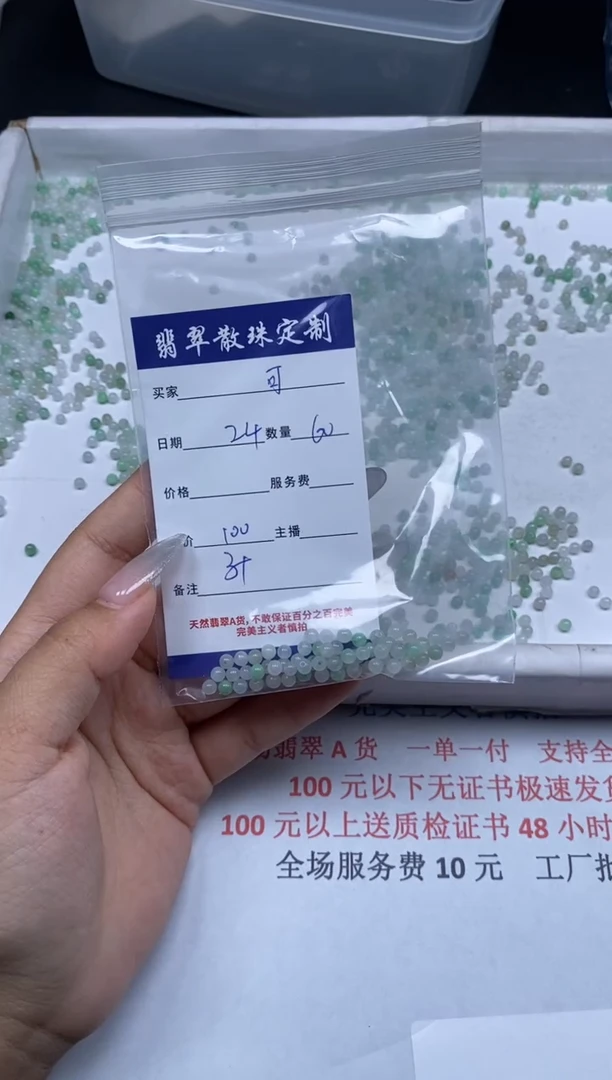 翡翠散珠定制
买家 可
日期 24 数量 60
价格 服务费
价 100 主播
备注
天然翡翠A货,不敢保证百分之百完美
完美主义者慎拍
翡翠 A 货 一单一付 支持全
100 元以下无证书极速发货
100 元以上送质检证书 48 小时
全场服务费 10 元 工厂批